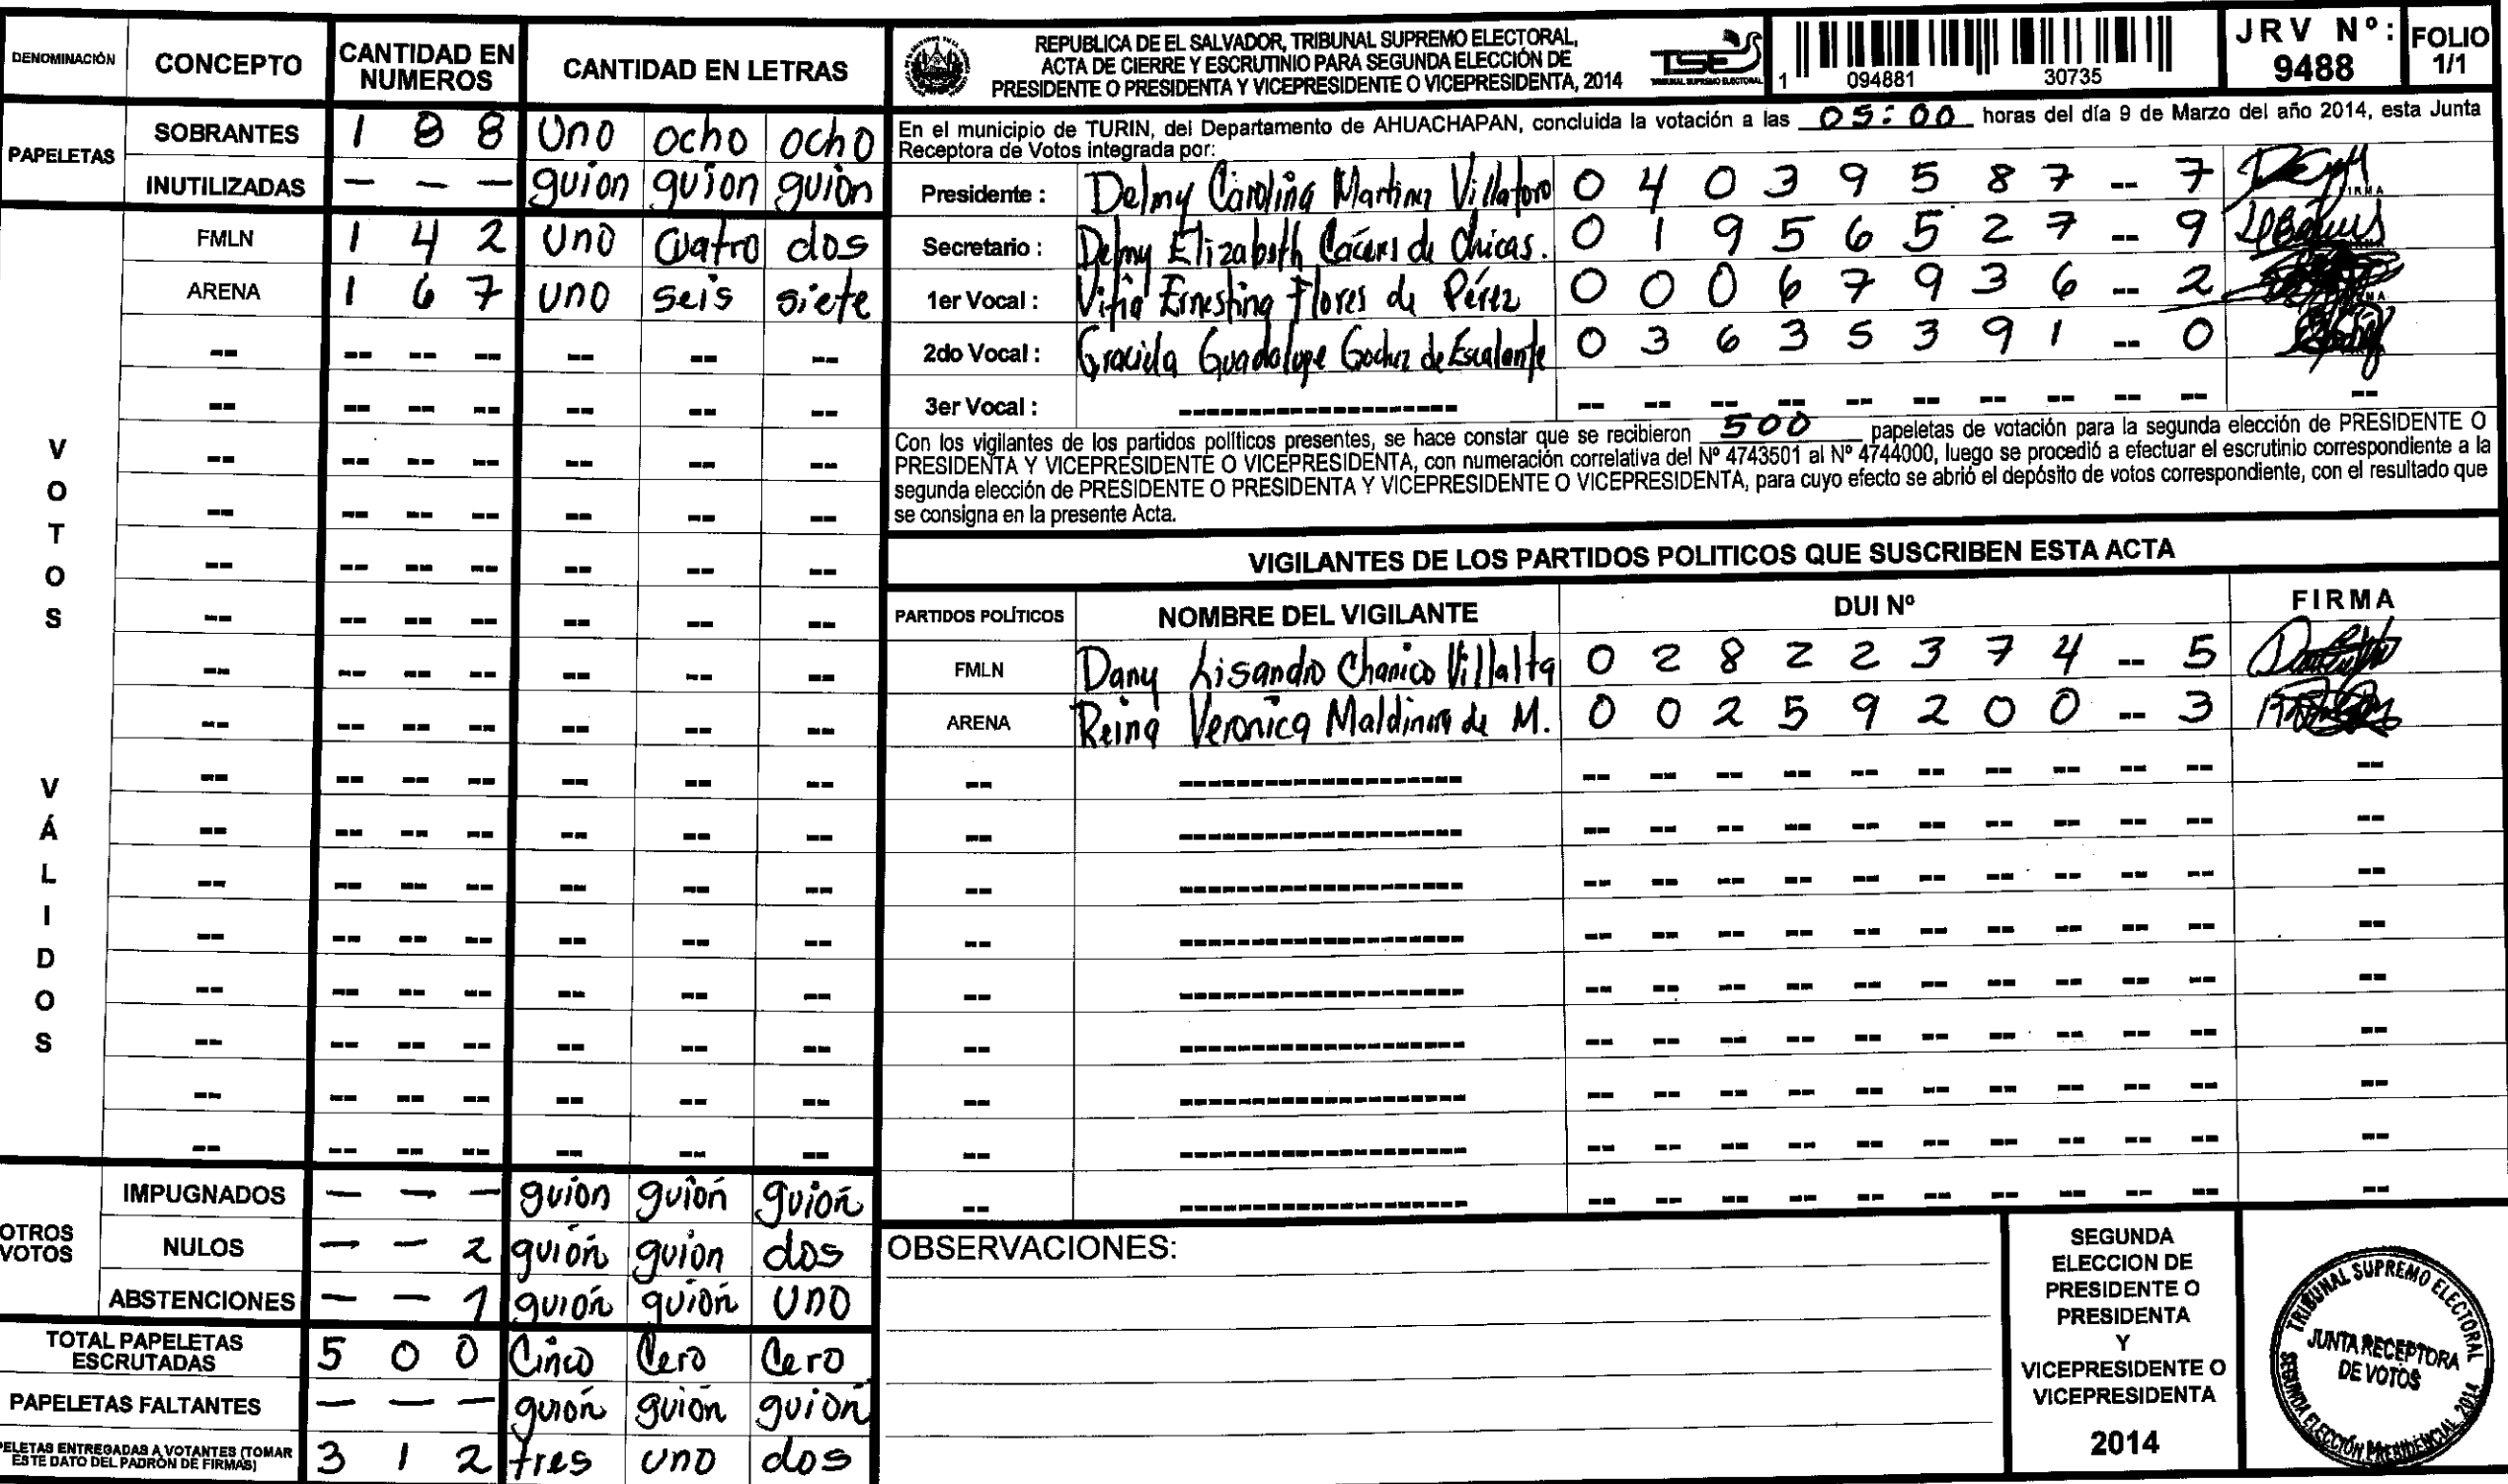 DENOMINACIÓN CONCEPTO CANTIDAD EN NUMEROS CANTIDAD EN LETRAS
PAPELETAS
SOBRANTES 1 8 8 uno ocho ocho
INUTILIZADAS - - - guion guion guion
VOTOS VÁLIDOS
FMLN 1 4 2 uno cuatro dos
ARENA 1 6 7 uno seis siete
OTROS VOTOS
IMPUGNADOS - - - guion guion guion
NULOS - - 2 guion guion dos
ABSTENCIONES - - 1 guion guion uno
TOTAL PAPELETAS ESCRUTADAS 5 0 0 Cinco Cero Cero
PAPELETAS FALTANTES - - - guion guion guion
PELETAS ENTREGADAS A VOTANTES (TOMAR ESTE DATO DEL PADRÓN DE FIRMAS) 3 1 2 tres uno dos
REPUBLICA DE EL SALVADOR, TRIBUNAL SUPREMO ELECTORAL,
ACTA DE CIERRE Y ESCRUTINIO PARA SEGUNDA ELECCIÓN DE
PRESIDENTE O PRESIDENTA Y VICEPRESIDENTE O VICEPRESIDENTA, 2014
TSE
TRIBUNAL SUPREMO ELECTORAL
1 094881 30735
JRV Nº: 9488
FOLIO 1/1
En el municipio de TURIN, del Departamento de AHUACHAPAN, concluida la votación a las 05:00 horas del día 9 de Marzo del año 2014, esta Junta
Receptora de Votos integrada por:
Presidente : Delmy Carolina Martinez Villatoro 0 4 0 3 9 5 8 7 -- 7
Secretario : Delmy Elizabeth Cáceres de Chicas. 0 1 9 5 6 5 2 7 -- 9
1er Vocal : Ernestina Flores de Pérez 0 0 0 6 7 9 3 6 -- 2
2do Vocal : Graciela Guadalupe de Escalante 0 3 6 3 5 3 9 1 -- 0
3er Vocal :
Con los vigilantes de los partidos políticos presentes, se hace constar que se recibieron 500 papeletas de votación para la segunda elección de PRESIDENTE O
PRESIDENTA Y VICEPRESIDENTE O VICEPRESIDENTA, con numeración correlativa del Nº 4743501 al Nº 4744000, luego se procedió a efectuar el escrutinio correspondiente a la
segunda elección de PRESIDENTE O PRESIDENTA Y VICEPRESIDENTE O VICEPRESIDENTA, para cuyo efecto se abrió el depósito de votos correspondiente, con el resultado que
se consigna en la presente Acta.
VIGILANTES DE LOS PARTIDOS POLITICOS QUE SUSCRIBEN ESTA ACTA
PARTIDOS POLÍTICOS NOMBRE DEL VIGILANTE DUI Nº FIRMA
FMLN Dany Lisandro Chanico Villalta 0 2 8 2 2 3 7 4 -- 5
ARENA Reina Veronica de M. 0 0 2 5 9 2 0 0 -- 3
OBSERVACIONES:
SEGUNDA
ELECCION DE
PRESIDENTE O
PRESIDENTA
Y
VICEPRESIDENTE O
VICEPRESIDENTA
2014
TRIBUNAL SUPREMO ELECTORAL
JUNTA RECEPTORA
DE VOTOS
SEGUNDA ELECCIÓN PRESIDENCIAL 2014